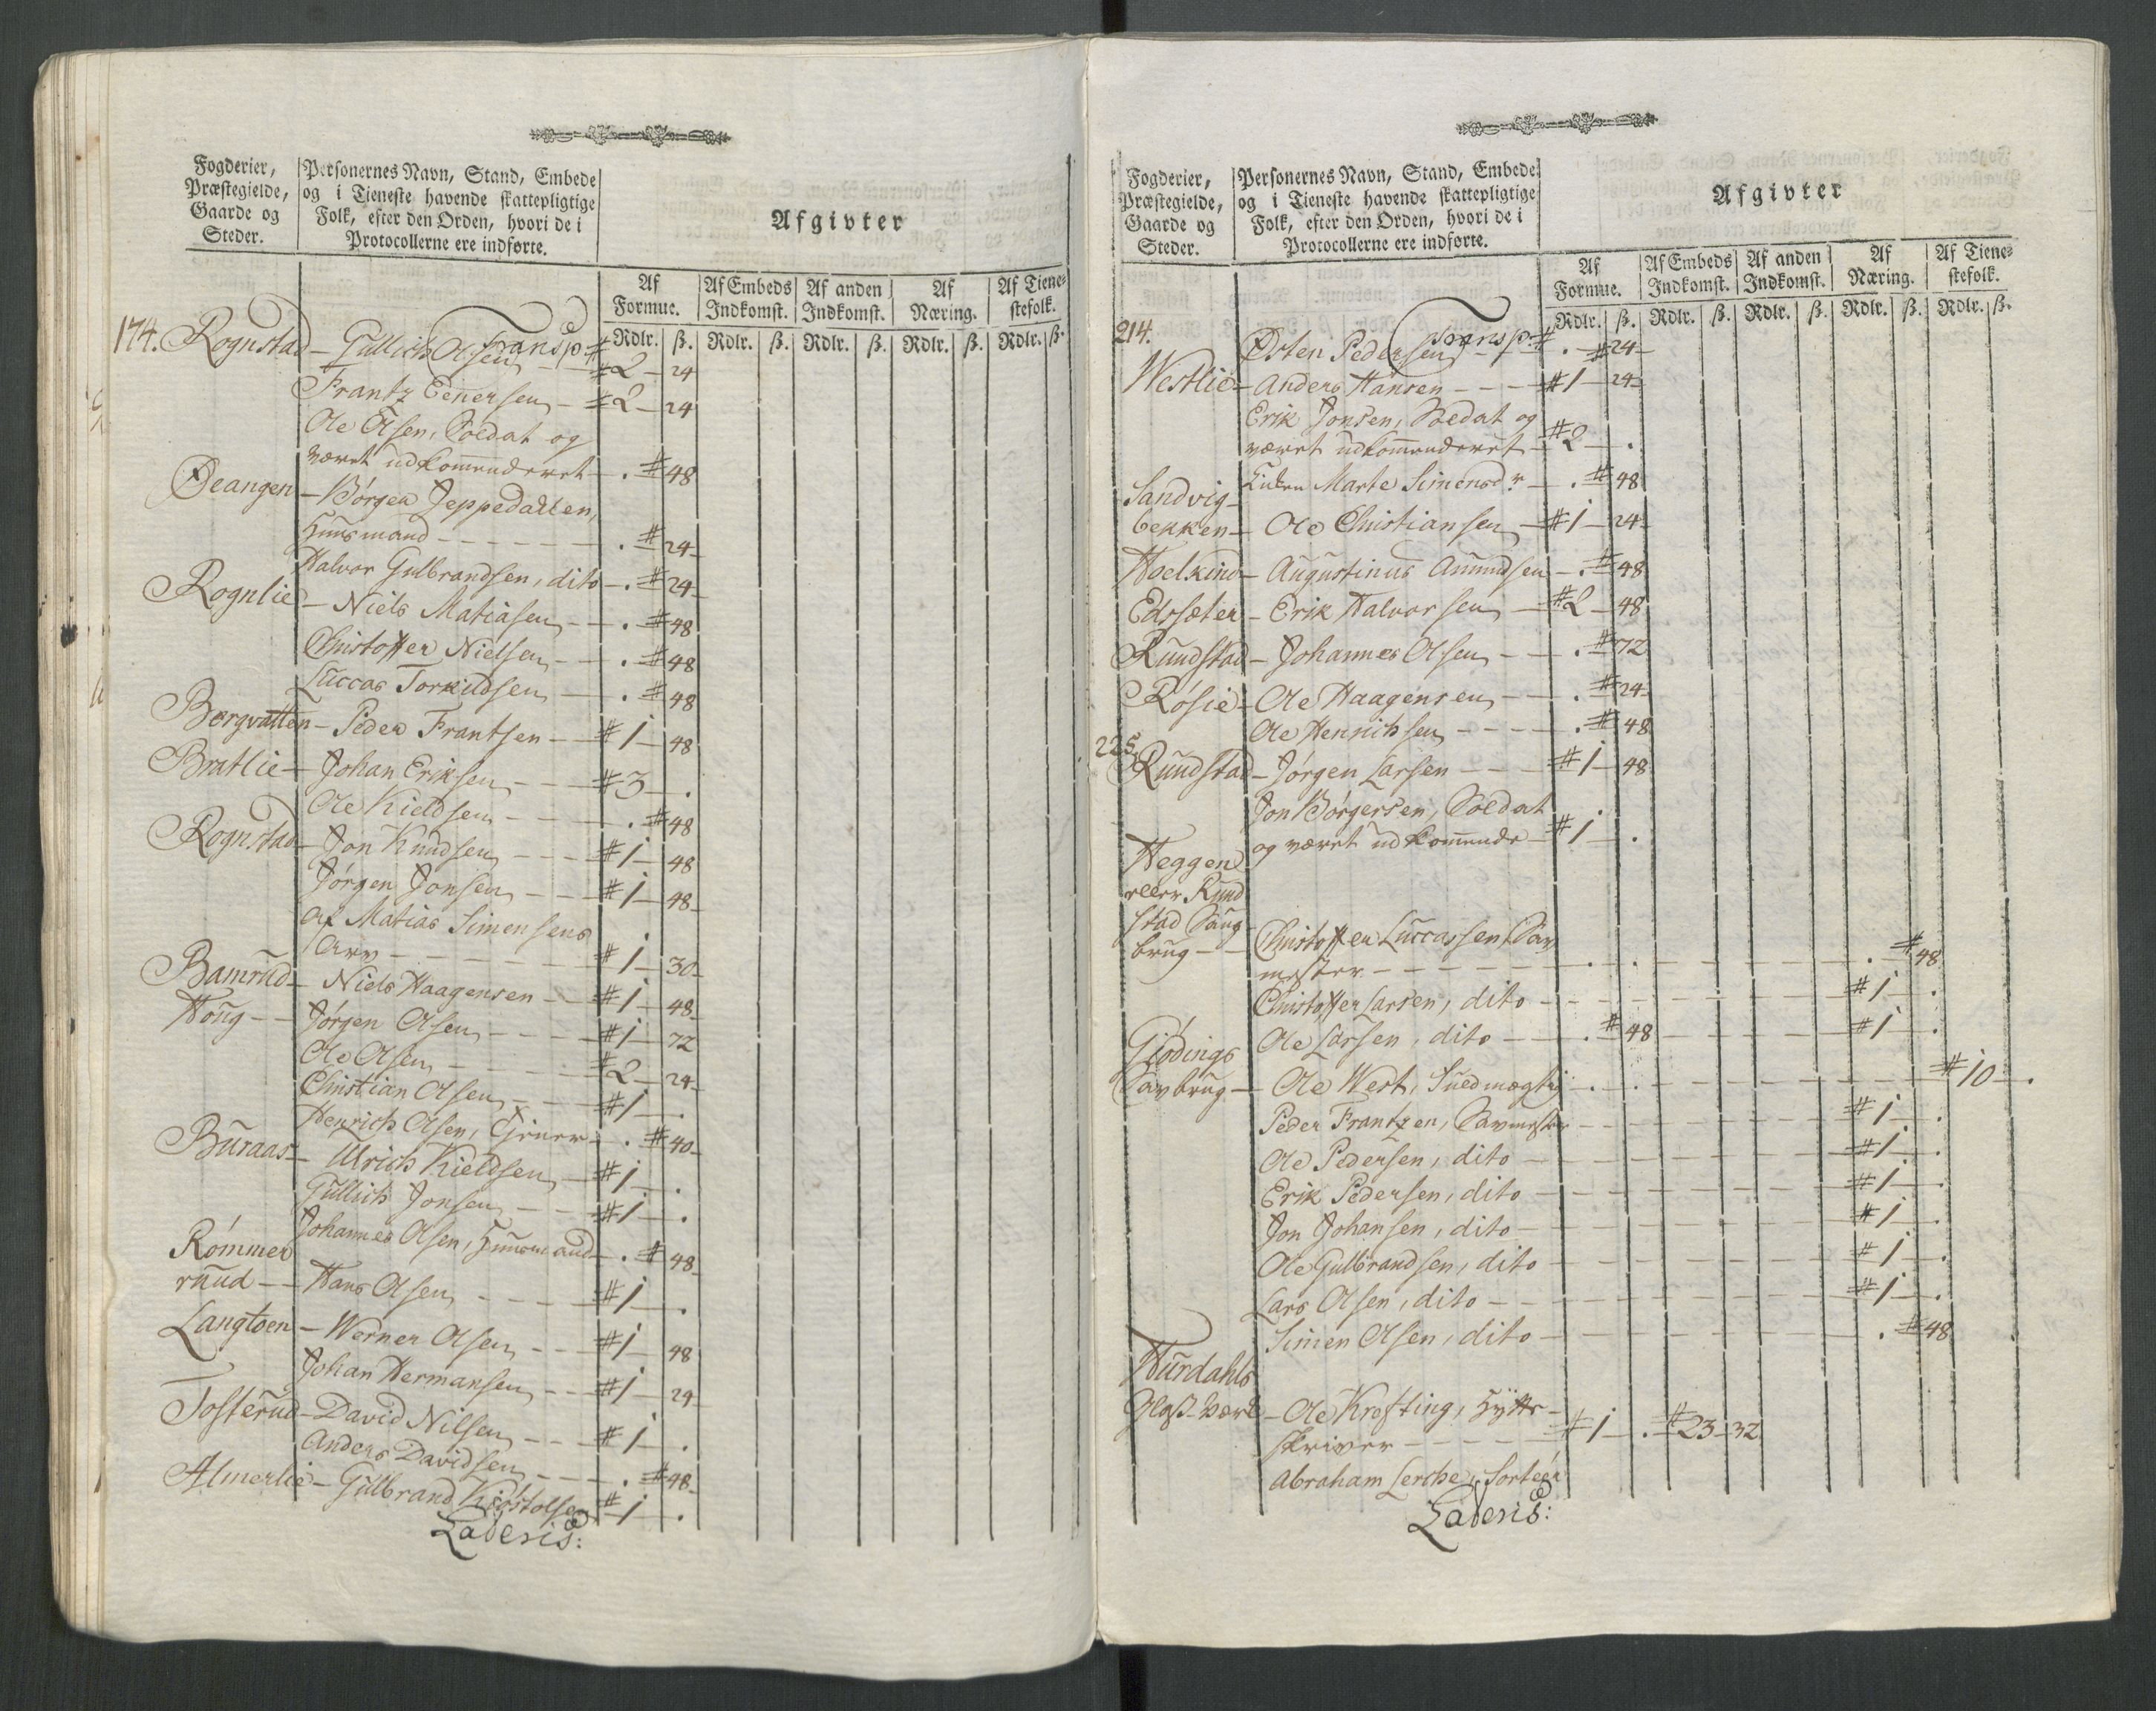 Fogderier,
Præstegielde,
Gaarde og
Steder.
Personernes Navn, Stand, Embede
og i Tieneste havende skattepligtige
Folk, efter den Orden, hvori de i
Protocollerne ere indførte.
Afgivter
Af
Formue.
Af Embeds
Indkomst.
Af anden
Indkomst.
Af
Næring.
Af Tiene-
stefolk.
Rdlr. ß. Rdlr. ß. Rdlr. ß. Rdlr. ß. Rdlr. ß.
Transp:
174. Rognstad - Gullich Olsen - # 2 - 24
Frantz Einersen - # 2 - 24
Ole Olsen, Soldat og
været udkommenderet - . # 48
Øeangen - Børger Jeppedalen,
Huusmand - - - - - . # 24
Halvor Gulbrandsen, dito - . # 24
Rognlie - Niels Matiasen - - . # 48
Christoffer Nielsen - - . # 48
Luccas Torkildsen - . # 48
Bergvatten - Peder Frantsen - # 1 - 48
Bratlie - Johan Eriksen - - # 3 - .
Ole Kieldsen - - - . # 48
Rognstad - Jon Knudsen - - - # 1 - 48
Jørgen Jonsen - - - # 1 - 48
Af Matias Simensens
Arv - - - - - # 1 - 30
Bamrud - Niels Haagensen - # 1 - 48
Houg - - Jørgen Olsen - - - # 1 - 72
Ole Olsen - - - - # 2 - 24
Christian Olsen - - # 1 - .
Henrich Olsen, Tiener - . # 40
Buraas - Ulrich Kieldsen - # 1 - .
Gullich Jonsen - - # 1 - .
Johannes Olsen, Huusmand - . # 48
Rømmer
ruud - - Hans Olsen - - - # 1 - .
Langtoen - Werner Olsen - - # 1 - 48
Johan Hermansen - - # 1 - 24
Tosterud - David Nilsen - - # 1 - .
Anders Davidsen - - - . # 48
Almerlie - Gulbrand Kiøstolsen # 1 - .
Lateris:
Fogderier,
Præstegielde,
Gaarde og
Steder.
Personernes Navn, Stand, Embede
og i Tieneste havende skattepligtige
Folk, efter den Orden, hvori de i
Protocollerne ere indførte.
Afgivter
Af
Formue.
Af Embeds
Indkomst.
Af anden
Indkomst.
Af
Næring.
Af Tiene-
stefolk.
Rdlr. ß. Rdlr. ß. Rdlr. ß. Rdlr. ß. Rdlr. ß.
Transp: #
214. Østen Pedersen - - . # 24
Westlie - Anders Hansen - - - # 1 - 24
Erik Jonsen, Soldat og
været udkommenderet - # 2 - .
Enken Marte Simensdr - . # 48
Sandvig-
bekken - Ole Christiansen - # 1 - 24
Hoelkind - Augustinus Amundsen - . # 48
Edssæter - Erik Halvorsen - # 2 - 48
Rundstad - Johannes Olsen - - . # 72
Røsie - Ole Haagensen - - . # 24
Ole Henrichsen - - - - . # 48
225. Rundstad - Jørgen Larsen - - - # 1 - 48
Jon Børgersen, Soldat
og været udkommende - # 1 - .
Heggen
eller Rund
stad Saug-
brug - - Christoffer Luccassen Sav
mester - - - - - . . - - - . # 48
Christoffer Larsen, dito - - - - - # 1 - .
Ole Larsen, dito - - . # 48 - - - # 1 - .
Giødings
Savbrug - Ole West, Fuldmægtig - . . - - - - - # 10 - .
Peder Frantzen, Savmester - - - - # 1 - .
Ole Pedersen, dito - - - - - # 1 - .
Erik Pedersen, dito - - - - - # 1 - .
Jon Johansen, dito - - - - - # 1 - .
Ole Gulbrandsen, dito - - - - - # 1 - .
Lars Olsen, dito - - - - - # 1 - .
Simen Olsen, dito - - - - - . # 48
Hurdahls
Glass-Værk - Ole Krefting, Hytte-
skriver - - - - # 1 - . # 23 - 32
Abraham Lerche, Sorteer
Lateris: